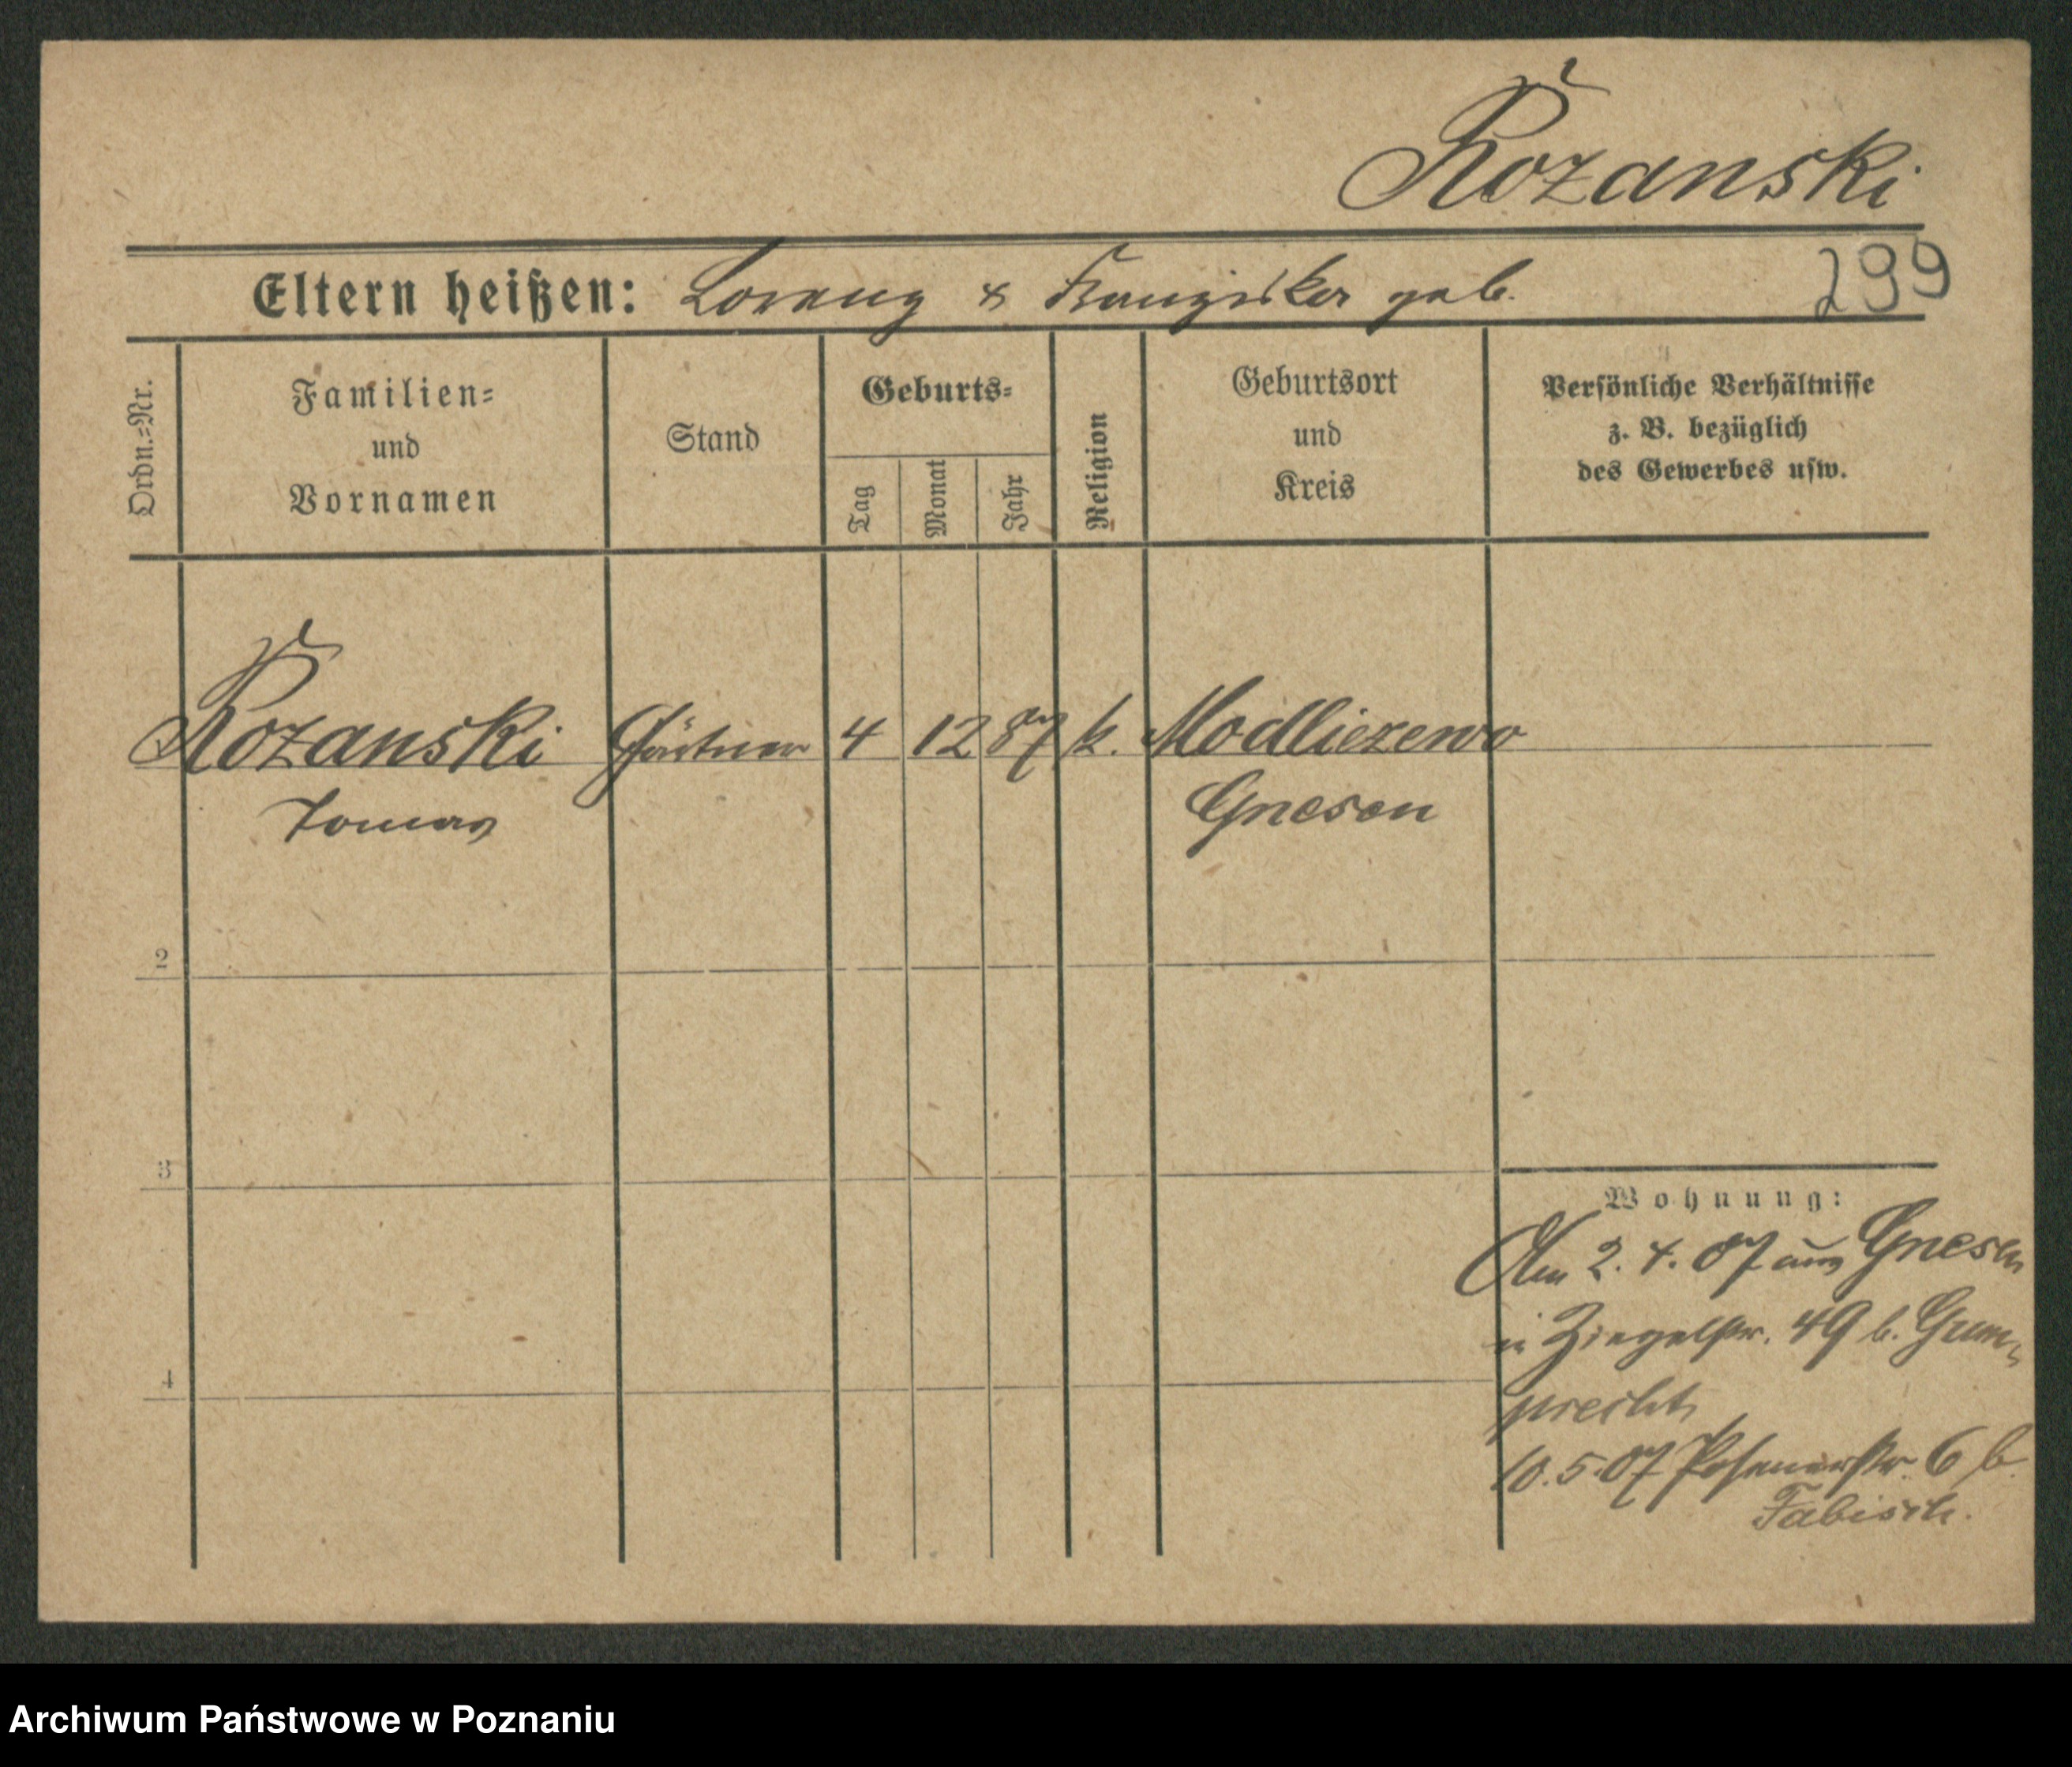 Rozanski
Eltern heißen: Lorenz & Franziska geb.
299
Ordn.-Nr.
Familien-
und
Vornamen
Stand
Geburts-
Tag
Monat
Jahr
Religion
Geburtsort
und
Kreis
Persönliche Verhältnisse
z. B. bezüglich
des Gewerbes usw.
Rozanski Gärtner 4 12 87 k. Modliezewo
Tomas Gnesen
2
3
4
Wohnung:
Am 2. 4. 07 aus Gnesen
in Ziegelstr. 49 b. Gum-
precht
10.5.07 Posenerstr. 6 b.
Fabisch.
Archiwum Państwowe w Poznaniu